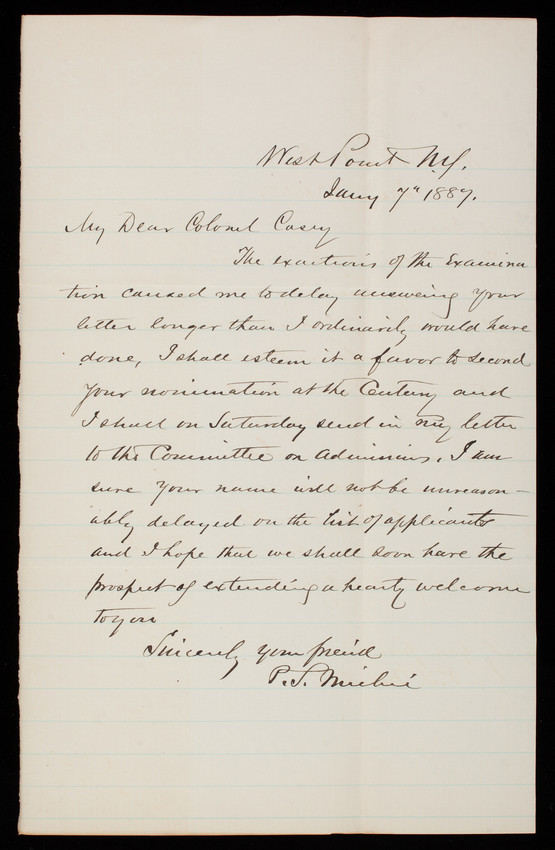 West Point N.Y.
Jany 7" 1887.
My Dear Colonel Casey
The exactions of the Examina
tion caused me to delay answering your
letter longer than I ordinarily would have
done, I shall esteem it a favor to second
your nomination at the Century and
I shall on Saturday send in my letter
to the Committee on Admissions. I am
sure your name will not be unreason-
ably delayed on the list of applicants
and I hope that we shall soon have the
prospect of extending a hearty welcome
to you
Sincerely your friend
P. S. Michie